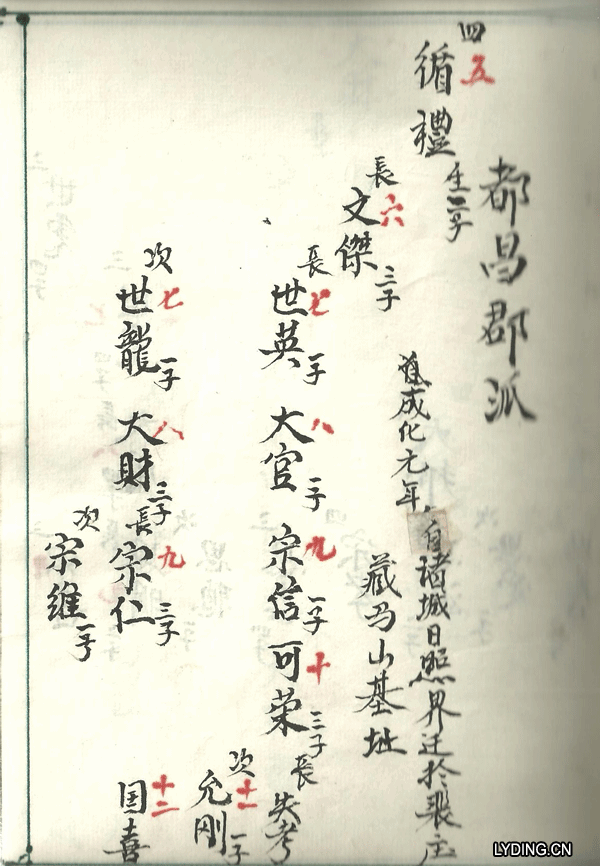 都昌郡派
四
五
循禮
生二子
自成化元年,自诸城日照界迁於裴庄
藏马山基址
長
六
文傑
三子
長
七
世英
一子
八
大官
一子
九
宗信
一子
十
可荣
三子
長
失考
次
十一
允刚
一子
十二
国喜
次
七
世龍
一子
八
大財
三子
長
九
宗仁
三子
次
宗维
一子
LYDING.CN